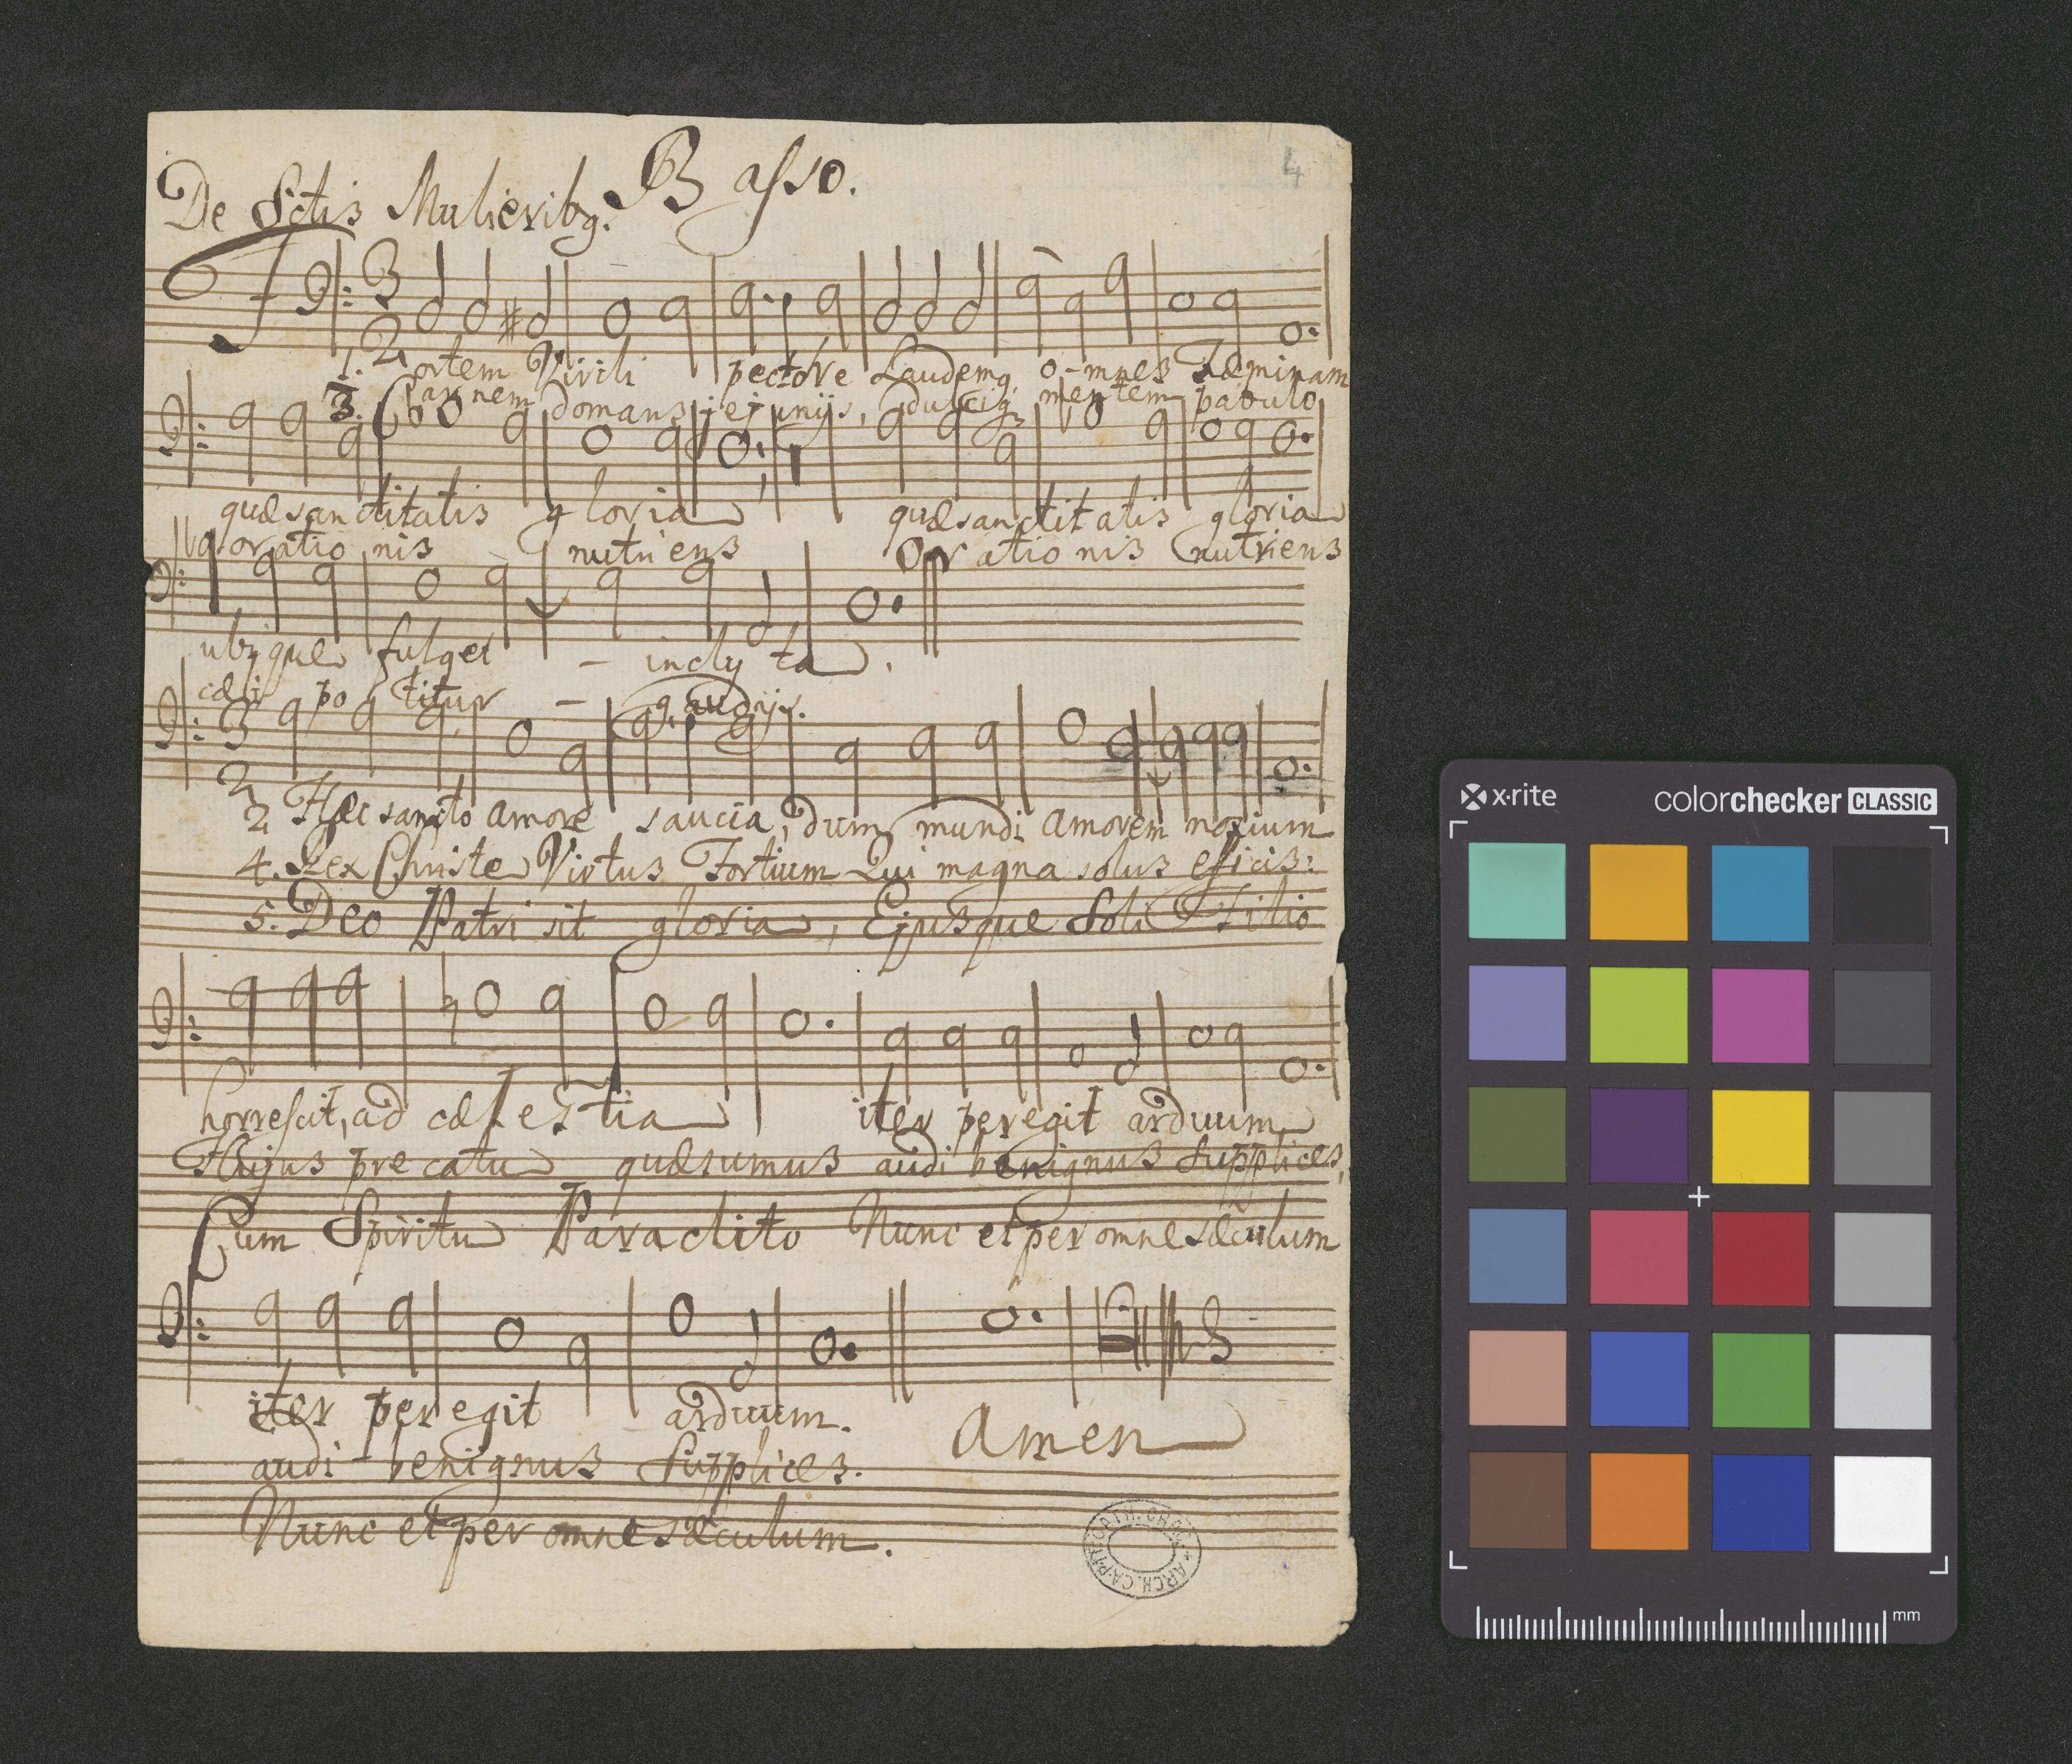 4
De Sctis Mulieribq. Basso.
3
2
1. Fortem Virili pectore Laudemq. o-mnes Fæminam
3. Carnem domans jejunijs, dulciq mentem pabulo
quæ sanctitatis gloria quæ sanctitatis gloria
orationis nutriens Orationis nutriens
ubique fulget - inclyta.
cæli potitur - gaudijs.
3
2
2 Hæc sancto amore saucia, dum mundi amorem noxium
4. Rex Christe Virtus Fortium Qui magna solus eficis:
5. Deo Patri sit gloria, Ejusque Soli Filio
horrescit, ad cælestia iter peregit arduum
Hujus precatu quæsumus audi benignus supplices,
Cum Spiritu Paraclito Nunc et per omne sæculum
iter peregit arduum. Amen
audi - benignus supplices.
Nunc et per omne sæculum.
x-rite colorchecker CLASSIC
mm